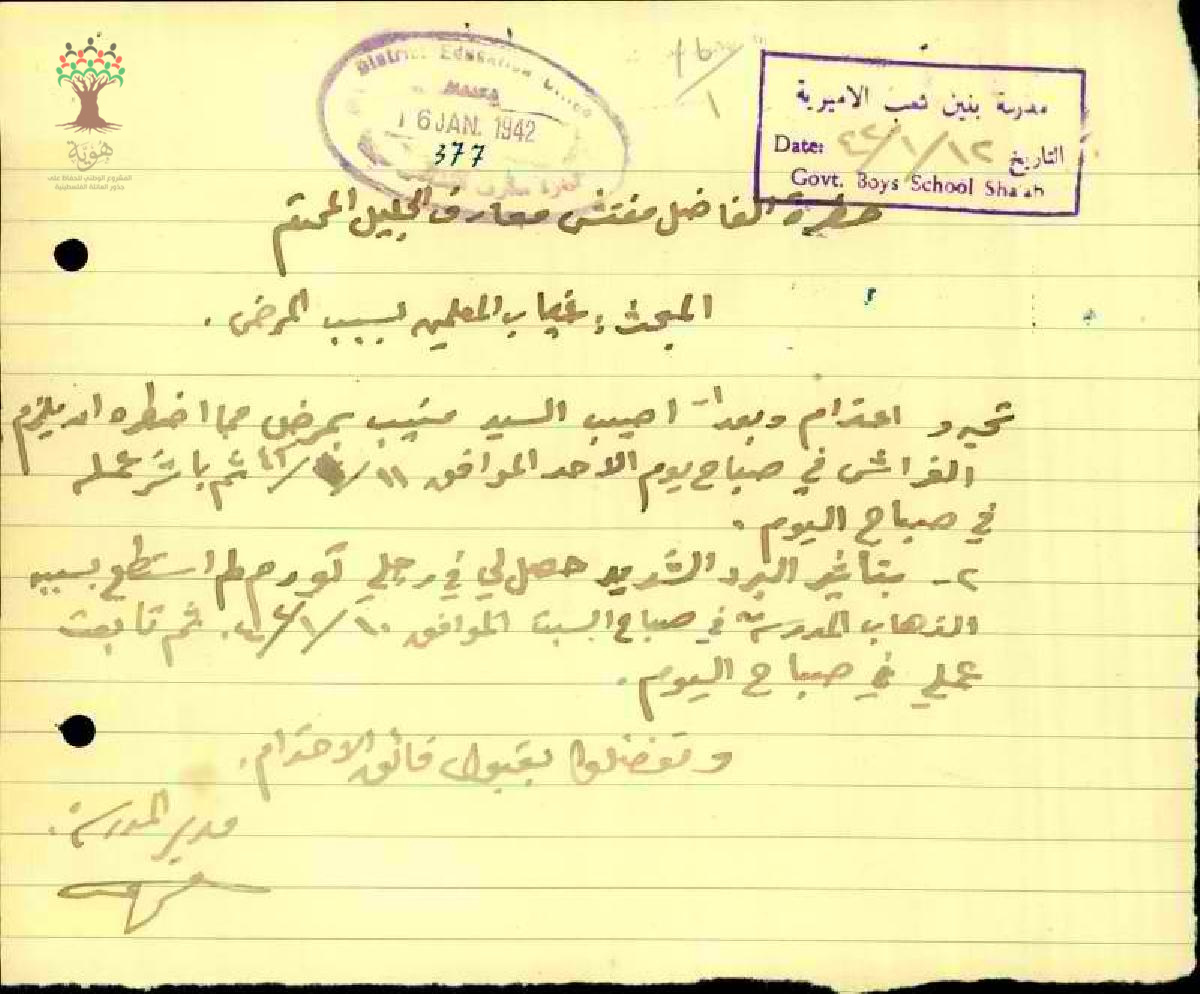 هوية
المشروع الوطني للحفاظ على
جذور العائلة الفلسطينية
District Education Office
16 JAN. 1942
377
مدرسة بنين شعب الاميرية
Date: ٤٢/١/١٢ التاريخ
Govt. Boys School Shaab
حضرة الفاضل مفتش معارف الجليل المحترم
المبحث: غياب المعلمين بسبب المرض.
تحية و احترام وبعد اصيب السيد منيب بمرض مما اضطره ان يلزم
الفراش في صباح يوم الاحد الموافق ١١/١/٤٢ ثم باشر عمله
في صباح اليوم.
٢- بتأثير البرد الشديد حصل لي في رجلي تورم لم استطع بسببه
الذهاب للمدرسة في صباح السبت الموافق ١٠/١/٤٢. ثم تابعت
عملي في صباح اليوم.
وتفضلوا بقبول فائق الاحترام.
مدير المدرسة.